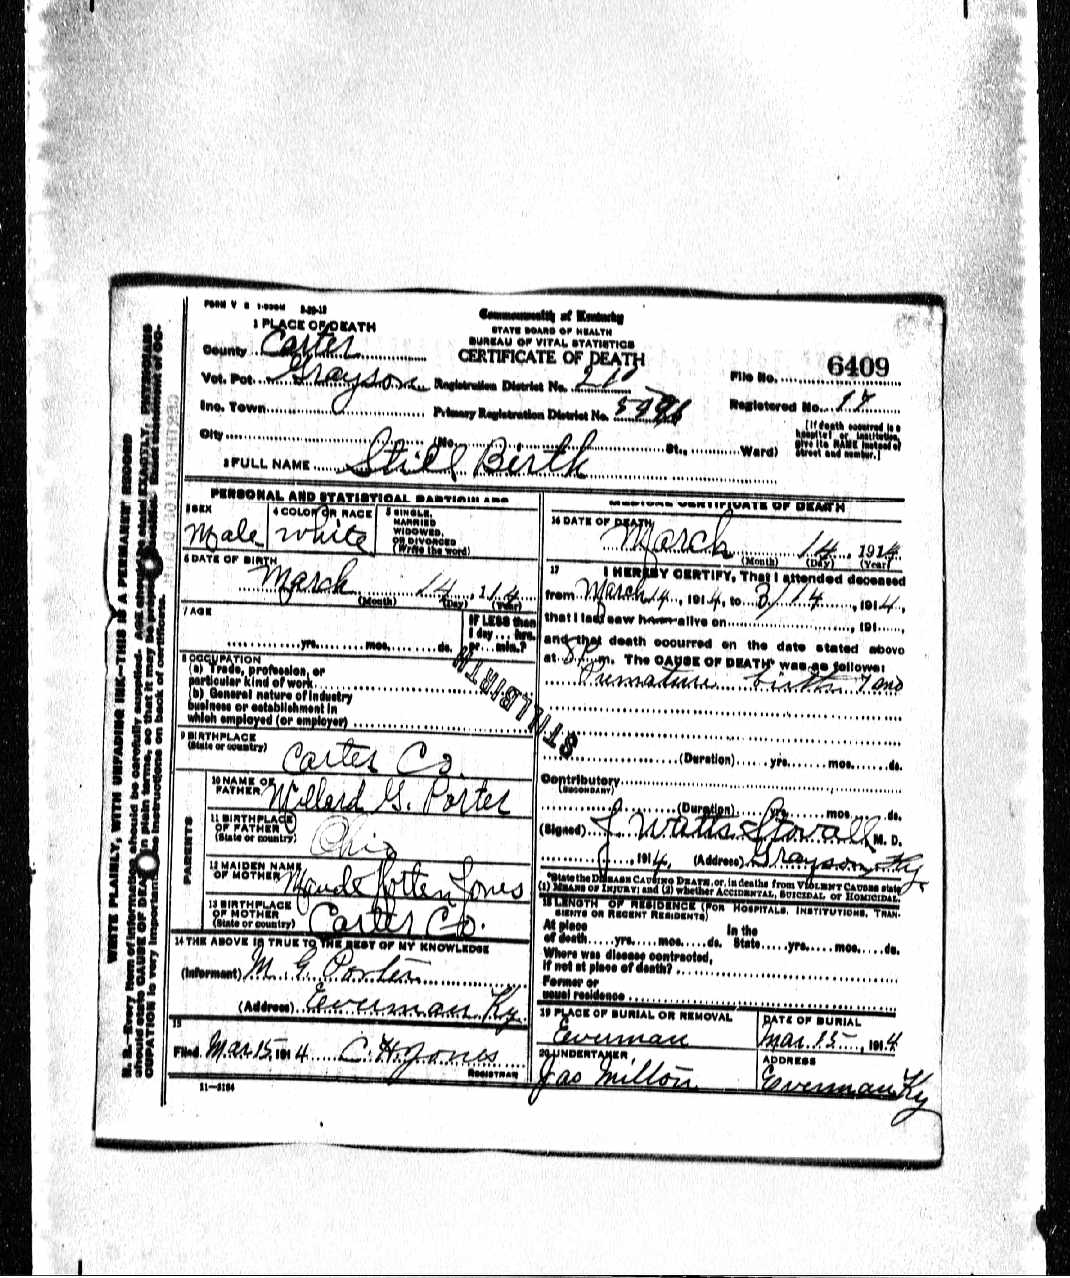 FORM V S 1-
Commonwealth of Kentucky
STATE BOARD OF HEALTH
BUREAU OF VITAL STATISTICS
CERTIFICATE OF DEATH
1 PLACE OF DEATH
County Carter
Vot. Pct. Grayson Registration District No. 210
File No. 6409
Inc. Town Primary Registration District No.
Registered No. 17
City (No. St., Ward)
[If death occurred in a
hospital or institution,
give its NAME instead of
street and number.]
2 FULL NAME Still Birth
PERSONAL AND STATISTICAL PARTICULARS
3 SEX
Male
4 COLOR OR RACE
White
5 SINGLE,
MARRIED
WIDOWED,
OR DIVORCED
(Write the word)
6 DATE OF BIRTH
March 14, 1914
(Month) (Day) (Year)
7 AGE
yrs. mos. ds.
IF LESS than
1 day... hrs.
or... min.?
8 OCCUPATION
(a) Trade, profession, or
particular kind of work
(b) General nature of industry
business or establishment in
which employed (or employer)
STILLBIRTH
9 BIRTHPLACE
(State or country)
Carter Co.
PARENTS
10 NAME OF
FATHER Millard G. Porter
11 BIRTHPLACE
OF FATHER
(State or country)
Ohio
12 MAIDEN NAME
OF MOTHER Maude Jones
13 BIRTHPLACE
OF MOTHER
(State or country)
Carter Co.
14 THE ABOVE IS TRUE TO THE BEST OF MY KNOWLEDGE
(Informant) M. G. Porter
(Address) Everman Ky.
15
Filed Mar 15 1914 C. H. Jones
REGISTRAR
11-3184
MEDICAL CERTIFICATE OF DEATH
16 DATE OF DEATH
March 14, 1914
(Month) (Day) (Year)
17 I HEREBY CERTIFY, That I attended deceased
from March 14, 1914, to 3/14, 1914,
that I last saw h alive on , 191 ,
and that death occurred on the date stated above
at 8 P. m. The CAUSE OF DEATH* was as follows:
Premature birth 7 mo
(Duration) yrs. mos. ds.
Contributory
(SECONDARY)
(Duration) yrs. mos. ds.
(Signed) J Watts Stovall M. D.
, 1914, (Address) Grayson Ky.
*State the DISEASE CAUSING DEATH, or, in deaths from VIOLENT CAUSES state
(1) MEANS OF INJURY; and (2) whether ACCIDENTAL, SUICIDAL or HOMICIDAL.
18 LENGTH OF RESIDENCE (FOR HOSPITALS, INSTITUTIONS, TRAN-
SIENTS OR RECENT RESIDENTS)
At place In the
of death yrs. mos. ds. State yrs. mos. ds.
Where was disease contracted,
if not at place of death?
Former or
usual residence
19 PLACE OF BURIAL OR REMOVAL
Everman
DATE OF BURIAL
Mar. 15, 1914
20 UNDERTAKER,
Jas Milton
ADDRESS
Everman Ky
WRITE PLAINLY, WITH UNFADING INK—THIS IS A PERMANENT RECORD
N. B.—Every item of information should be carefully supplied. AGE should be stated EXACTLY. PHYSICIANS
should state CAUSE OF DEATH in plain terms, so that it may be properly classified. Exact statement of OC-
CUPATION is very important. See instructions on back of certificate.